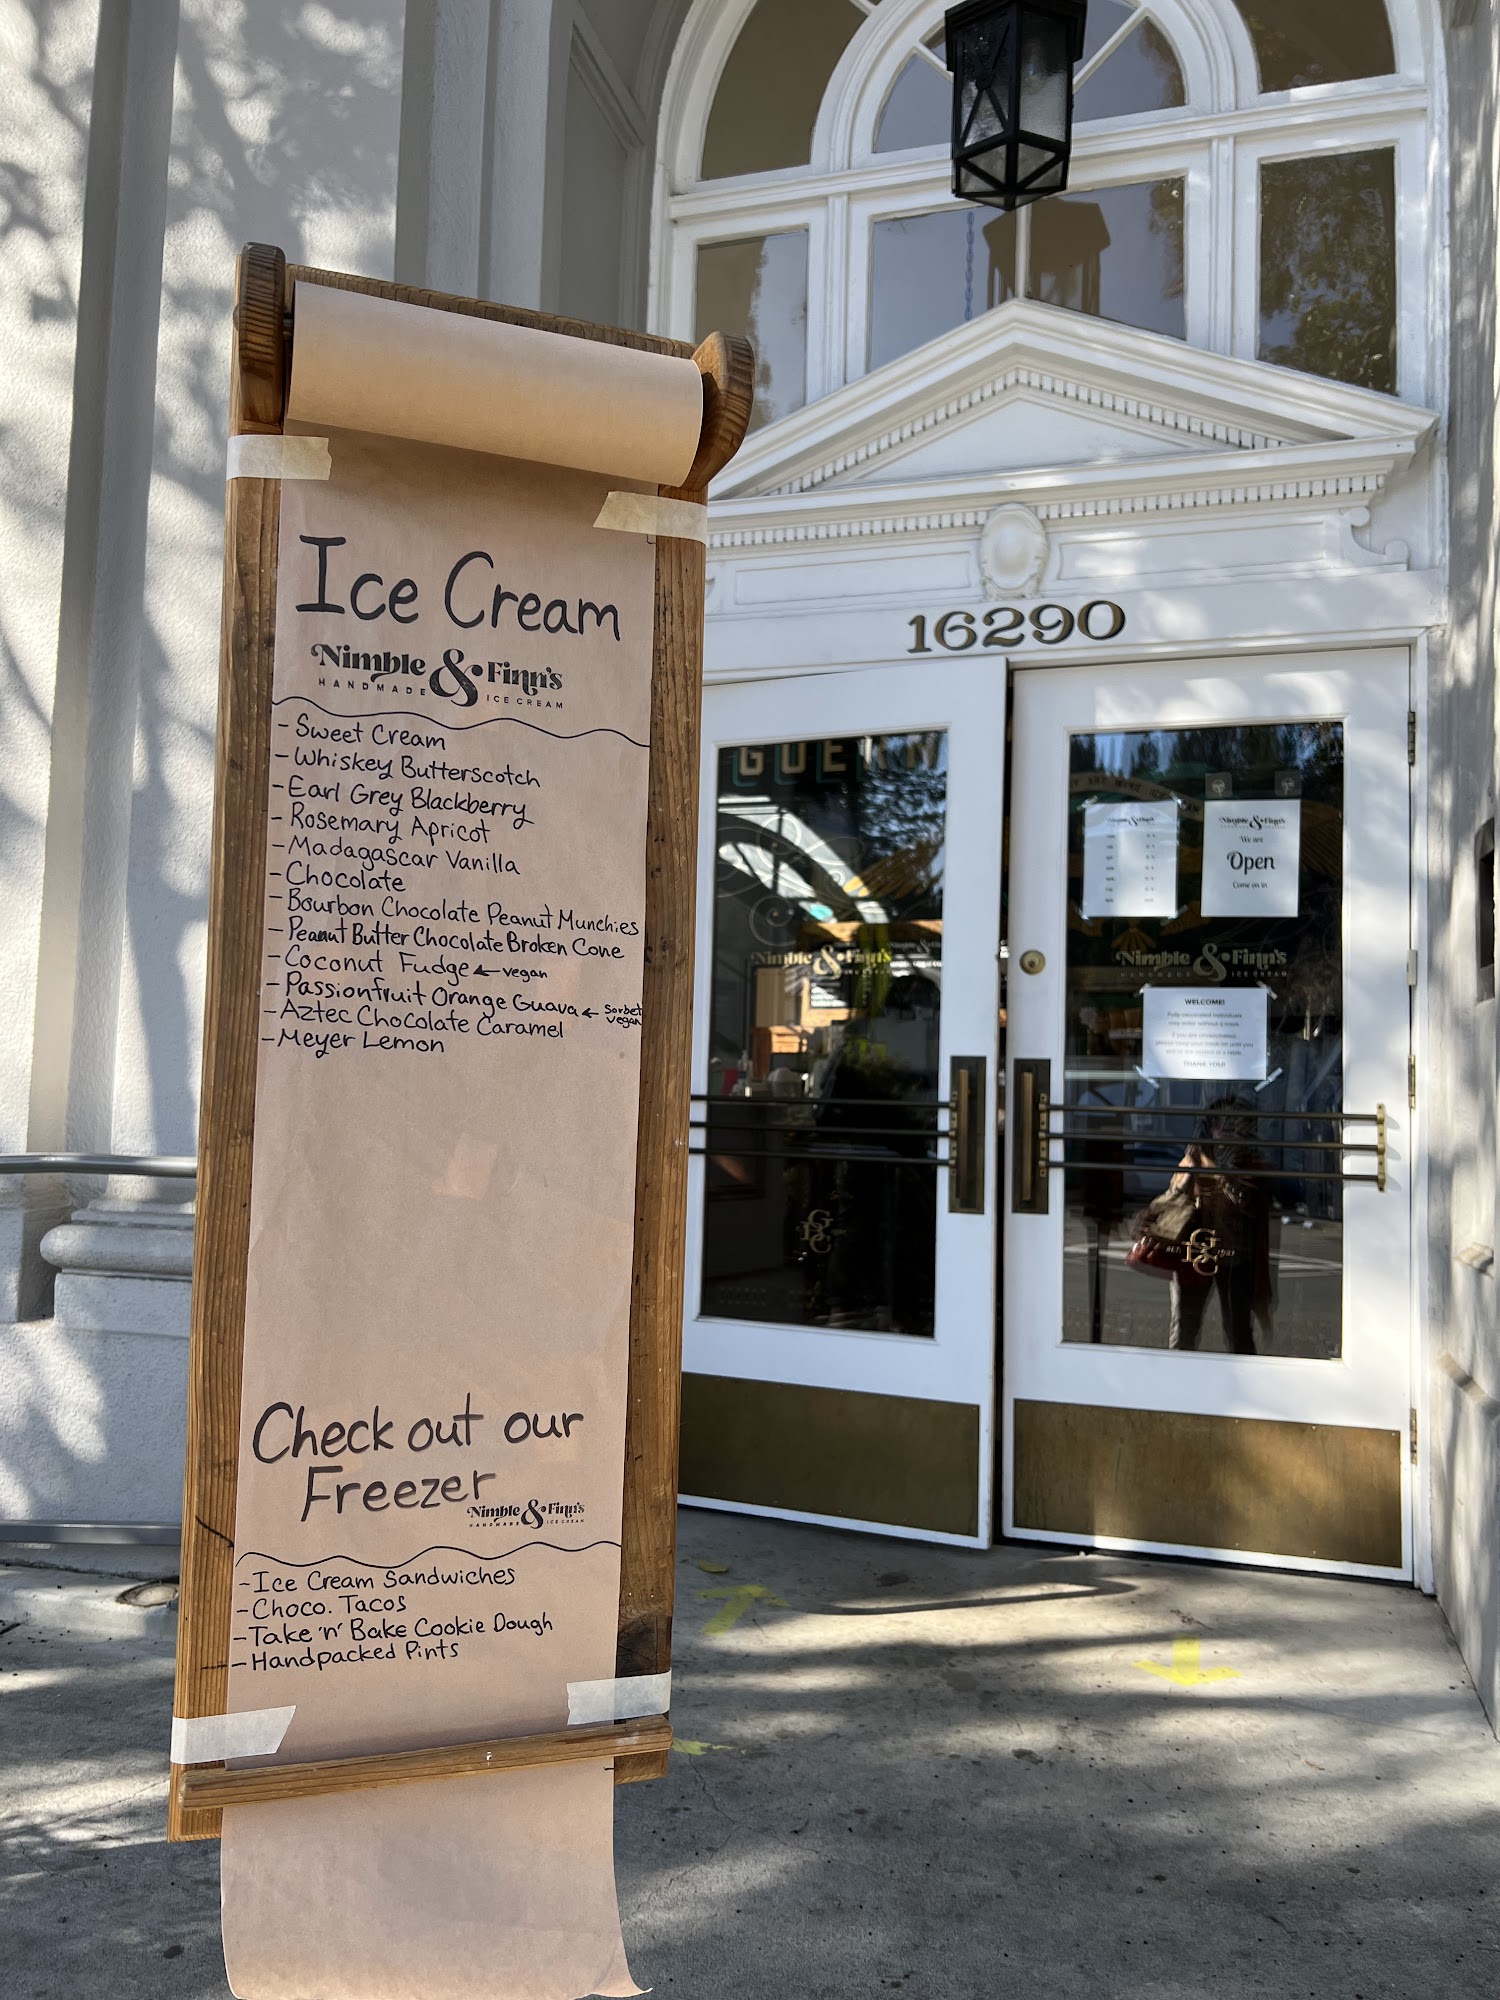 Ice Cream
Nimble & Finn's
HANDMADE ICE CREAM
- Sweet Cream
- Whiskey Butterscotch
- Earl Grey Blackberry
- Rosemary Apricot
- Madagascar Vanilla
- Chocolate
- Bourbon Chocolate Peanut Munchies
- Peanut Butter Chocolate Broken Cone
- Coconut Fudge ← vegan
- Passionfruit Orange Guava ← Sorbet vegan
- Aztec Chocolate Caramel
- Meyer Lemon
Check out our
Freezer
Nimble & Finn's
HANDMADE ICE CREAM
- Ice Cream Sandwiches
- Choco. Tacos
- Take 'n' Bake Cookie Dough
- Handpacked Pints
16290
Nimble & Finn's
Nimble & Finn's
We are
Open
Come on in
Nimble & Finn's
Nimble & Finn's
HANDMADE ICE CREAM
WELCOME!
Fully vaccinated individuals
may enter without a mask.
THANK YOU!